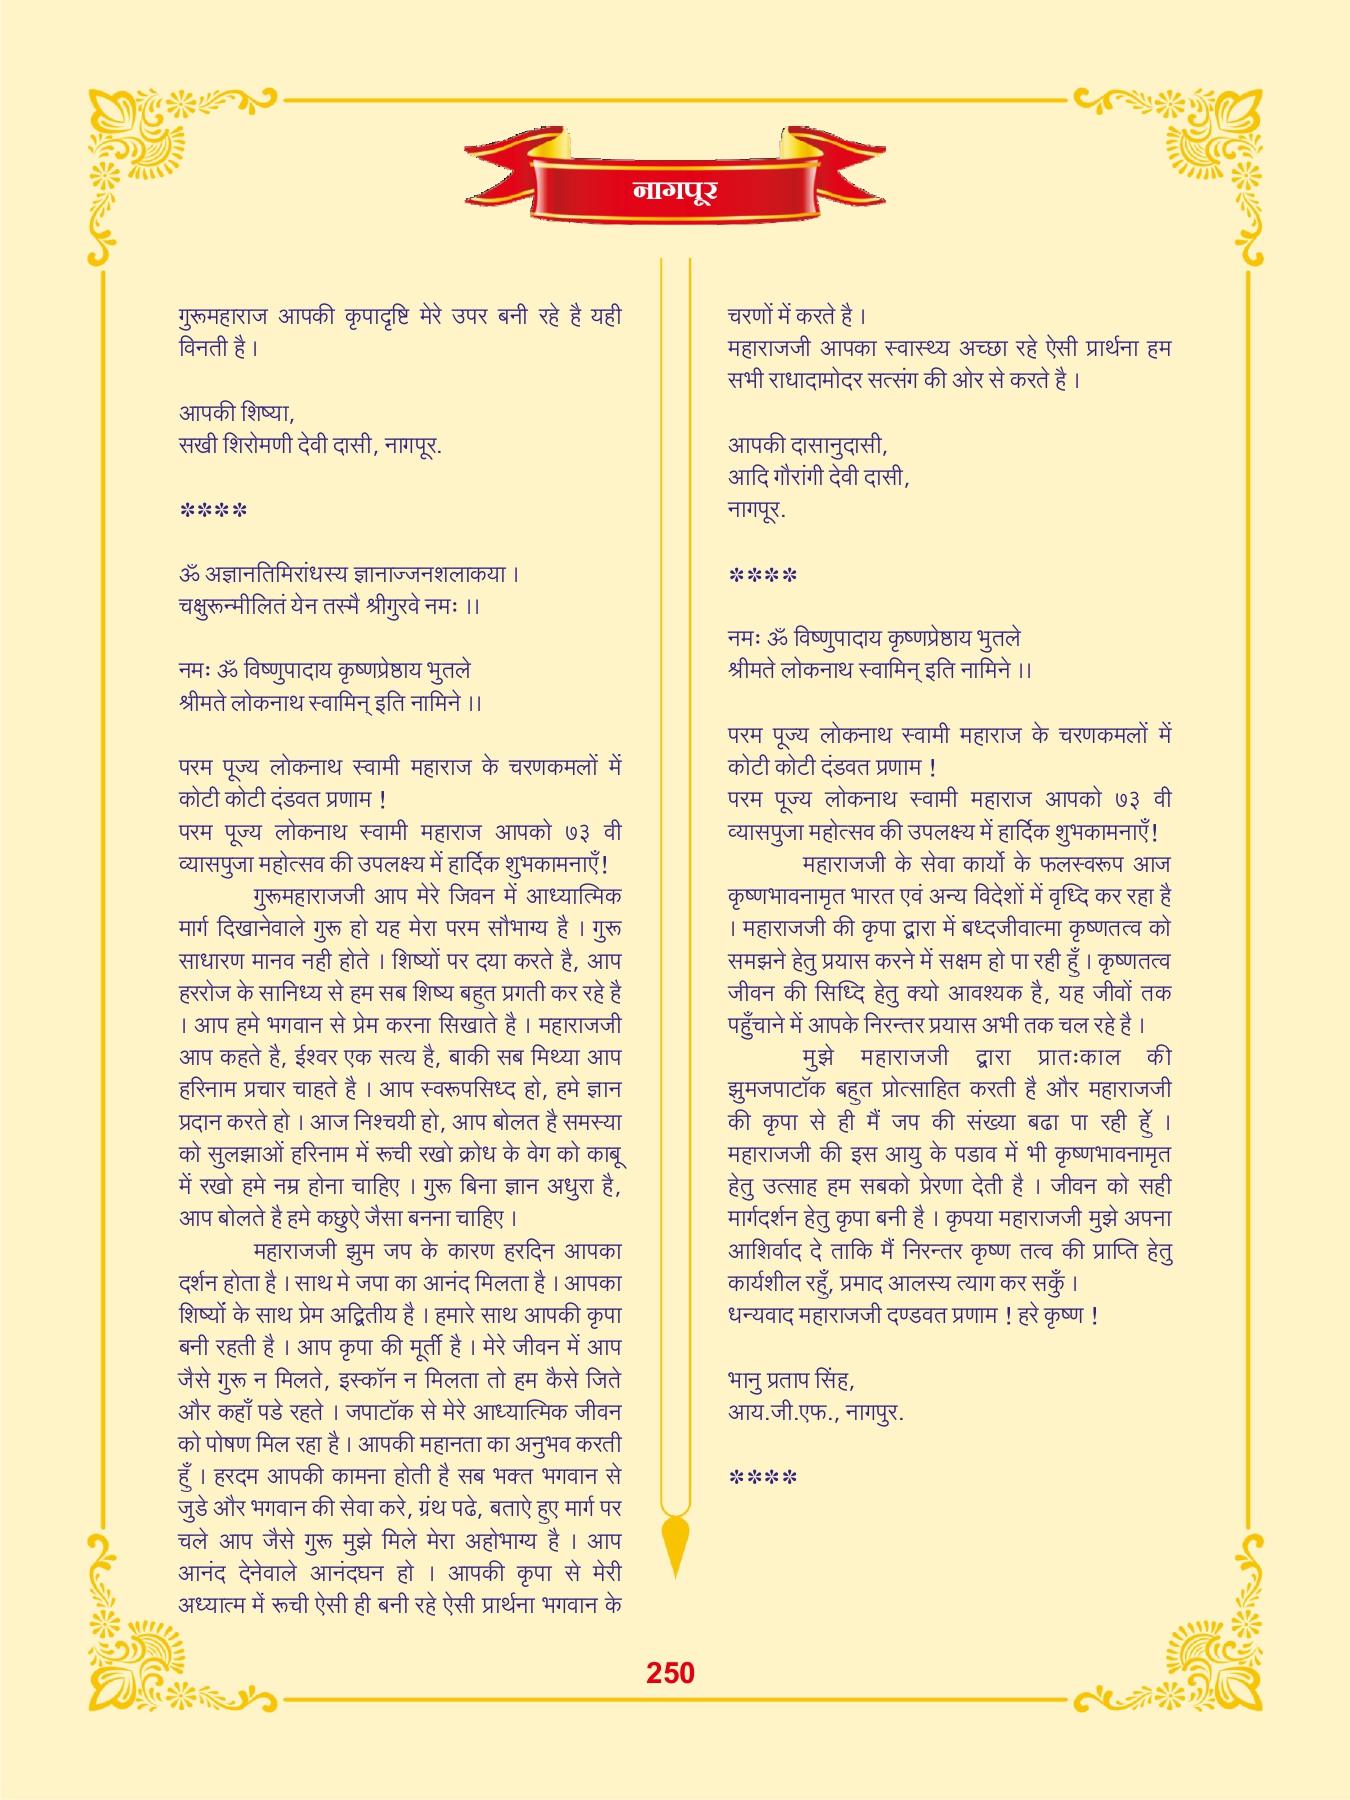 नागपूर
गुरूमहाराज आपकी कृपादृष्टि मेरे उपर बनी रहे है यही
विनती है ।
आपकी शिष्या,
सखी शिरोमणी देवी दासी, नागपूर.
****
ॐ अज्ञानतिमिरांधस्य ज्ञानाज्जनशलाकया ।
चक्षुरून्मीलितं येन तस्मै श्रीगुरवे नमः ।।
नमः ॐ विष्णुपादाय कृष्णप्रेष्ठाय भुतले
श्रीमते लोकनाथ स्वामिन् इति नामिने ।।
परम पूज्य लोकनाथ स्वामी महाराज के चरणकमलों में
कोटी कोटी दंडवत प्रणाम !
परम पूज्य लोकनाथ स्वामी महाराज आपको ७३ वी
व्यासपुजा महोत्सव की उपलक्ष्य में हार्दिक शुभकामनाएँ!
गुरूमहाराजजी आप मेरे जिवन में आध्यात्मिक
मार्ग दिखानेवाले गुरू हो यह मेरा परम सौभाग्य है । गुरू
साधारण मानव नही होते । शिष्यों पर दया करते है, आप
हररोज के सानिध्य से हम सब शिष्य बहुत प्रगती कर रहे है
। आप हमे भगवान से प्रेम करना सिखाते है । महाराजजी
आप कहते है, ईश्वर एक सत्य है, बाकी सब मिथ्या आप
हरिनाम प्रचार चाहते है । आप स्वरूपसिध्द हो, हमे ज्ञान
प्रदान करते हो । आज निश्चयी हो, आप बोलत है समस्या
को सुलझाओं हरिनाम में रूची रखो क्रोध के वेग को काबू
में रखो हमे नम्र होना चाहिए । गुरू बिना ज्ञान अधुरा है,
आप बोलते है हमे कछुऐ जैसा बनना चाहिए ।
महाराजजी झुम जप के कारण हरदिन आपका
दर्शन होता है । साथ मे जपा का आनंद मिलता है । आपका
शिष्यों के साथ प्रेम अद्वितीय है । हमारे साथ आपकी कृपा
बनी रहती है । आप कृपा की मूर्ती है । मेरे जीवन में आप
जैसे गुरू न मिलते, इस्कॉन न मिलता तो हम कैसे जिते
और कहाँ पडे रहते । जपाटॉक से मेरे आध्यात्मिक जीवन
को पोषण मिल रहा है । आपकी महानता का अनुभव करती
हुँ । हरदम आपकी कामना होती है सब भक्त भगवान से
जुडे और भगवान की सेवा करे, ग्रंथ पढे, बताऐ हुए मार्ग पर
चले आप जैसे गुरू मुझे मिले मेरा अहोभाग्य है । आप
आनंद देनेवाले आनंदघन हो । आपकी कृपा से मेरी
अध्यात्म में रूची ऐसी ही बनी रहे ऐसी प्रार्थना भगवान के
चरणों में करते है ।
महाराजजी आपका स्वास्थ्य अच्छा रहे ऐसी प्रार्थना हम
सभी राधादामोदर सत्संग की ओर से करते है ।
आपकी दासानुदासी,
आदि गौरांगी देवी दासी,
नागपूर.
****
नमः ॐ विष्णुपादाय कृष्णप्रेष्ठाय भुतले
श्रीमते लोकनाथ स्वामिन् इति नामिने ।।
परम पूज्य लोकनाथ स्वामी महाराज के चरणकमलों में
कोटी कोटी दंडवत प्रणाम !
परम पूज्य लोकनाथ स्वामी महाराज आपको ७३ वी
व्यासपुजा महोत्सव की उपलक्ष्य में हार्दिक शुभकामनाएँ!
महाराजजी के सेवा कार्यो के फलस्वरूप आज
कृष्णभावनामृत भारत एवं अन्य विदेशों में वृध्दि कर रहा है
। महाराजजी की कृपा द्वारा में बध्दजीवात्मा कृष्णतत्व को
समझने हेतु प्रयास करने में सक्षम हो पा रही हुँ । कृष्णतत्व
जीवन की सिध्दि हेतु क्यो आवश्यक है, यह जीवों तक
पहुँचाने में आपके निरन्तर प्रयास अभी तक चल रहे है ।
मुझे महाराजजी द्वारा प्रातःकाल की
झुमजपाटॉक बहुत प्रोत्साहित करती है और महाराजजी
की कृपा से ही मैं जप की संख्या बढा पा रही हुँ ।
महाराजजी की इस आयु के पडाव में भी कृष्णभावनामृत
हेतु उत्साह हम सबको प्रेरणा देती है । जीवन को सही
मार्गदर्शन हेतु कृपा बनी है । कृपया महाराजजी मुझे अपना
आशिर्वाद दे ताकि मैं निरन्तर कृष्ण तत्व की प्राप्ति हेतु
कार्यशील रहुँ, प्रमाद आलस्य त्याग कर सकुँ ।
धन्यवाद महाराजजी दण्डवत प्रणाम ! हरे कृष्ण !
भानु प्रताप सिंह,
आय.जी.एफ., नागपुर.
****
250